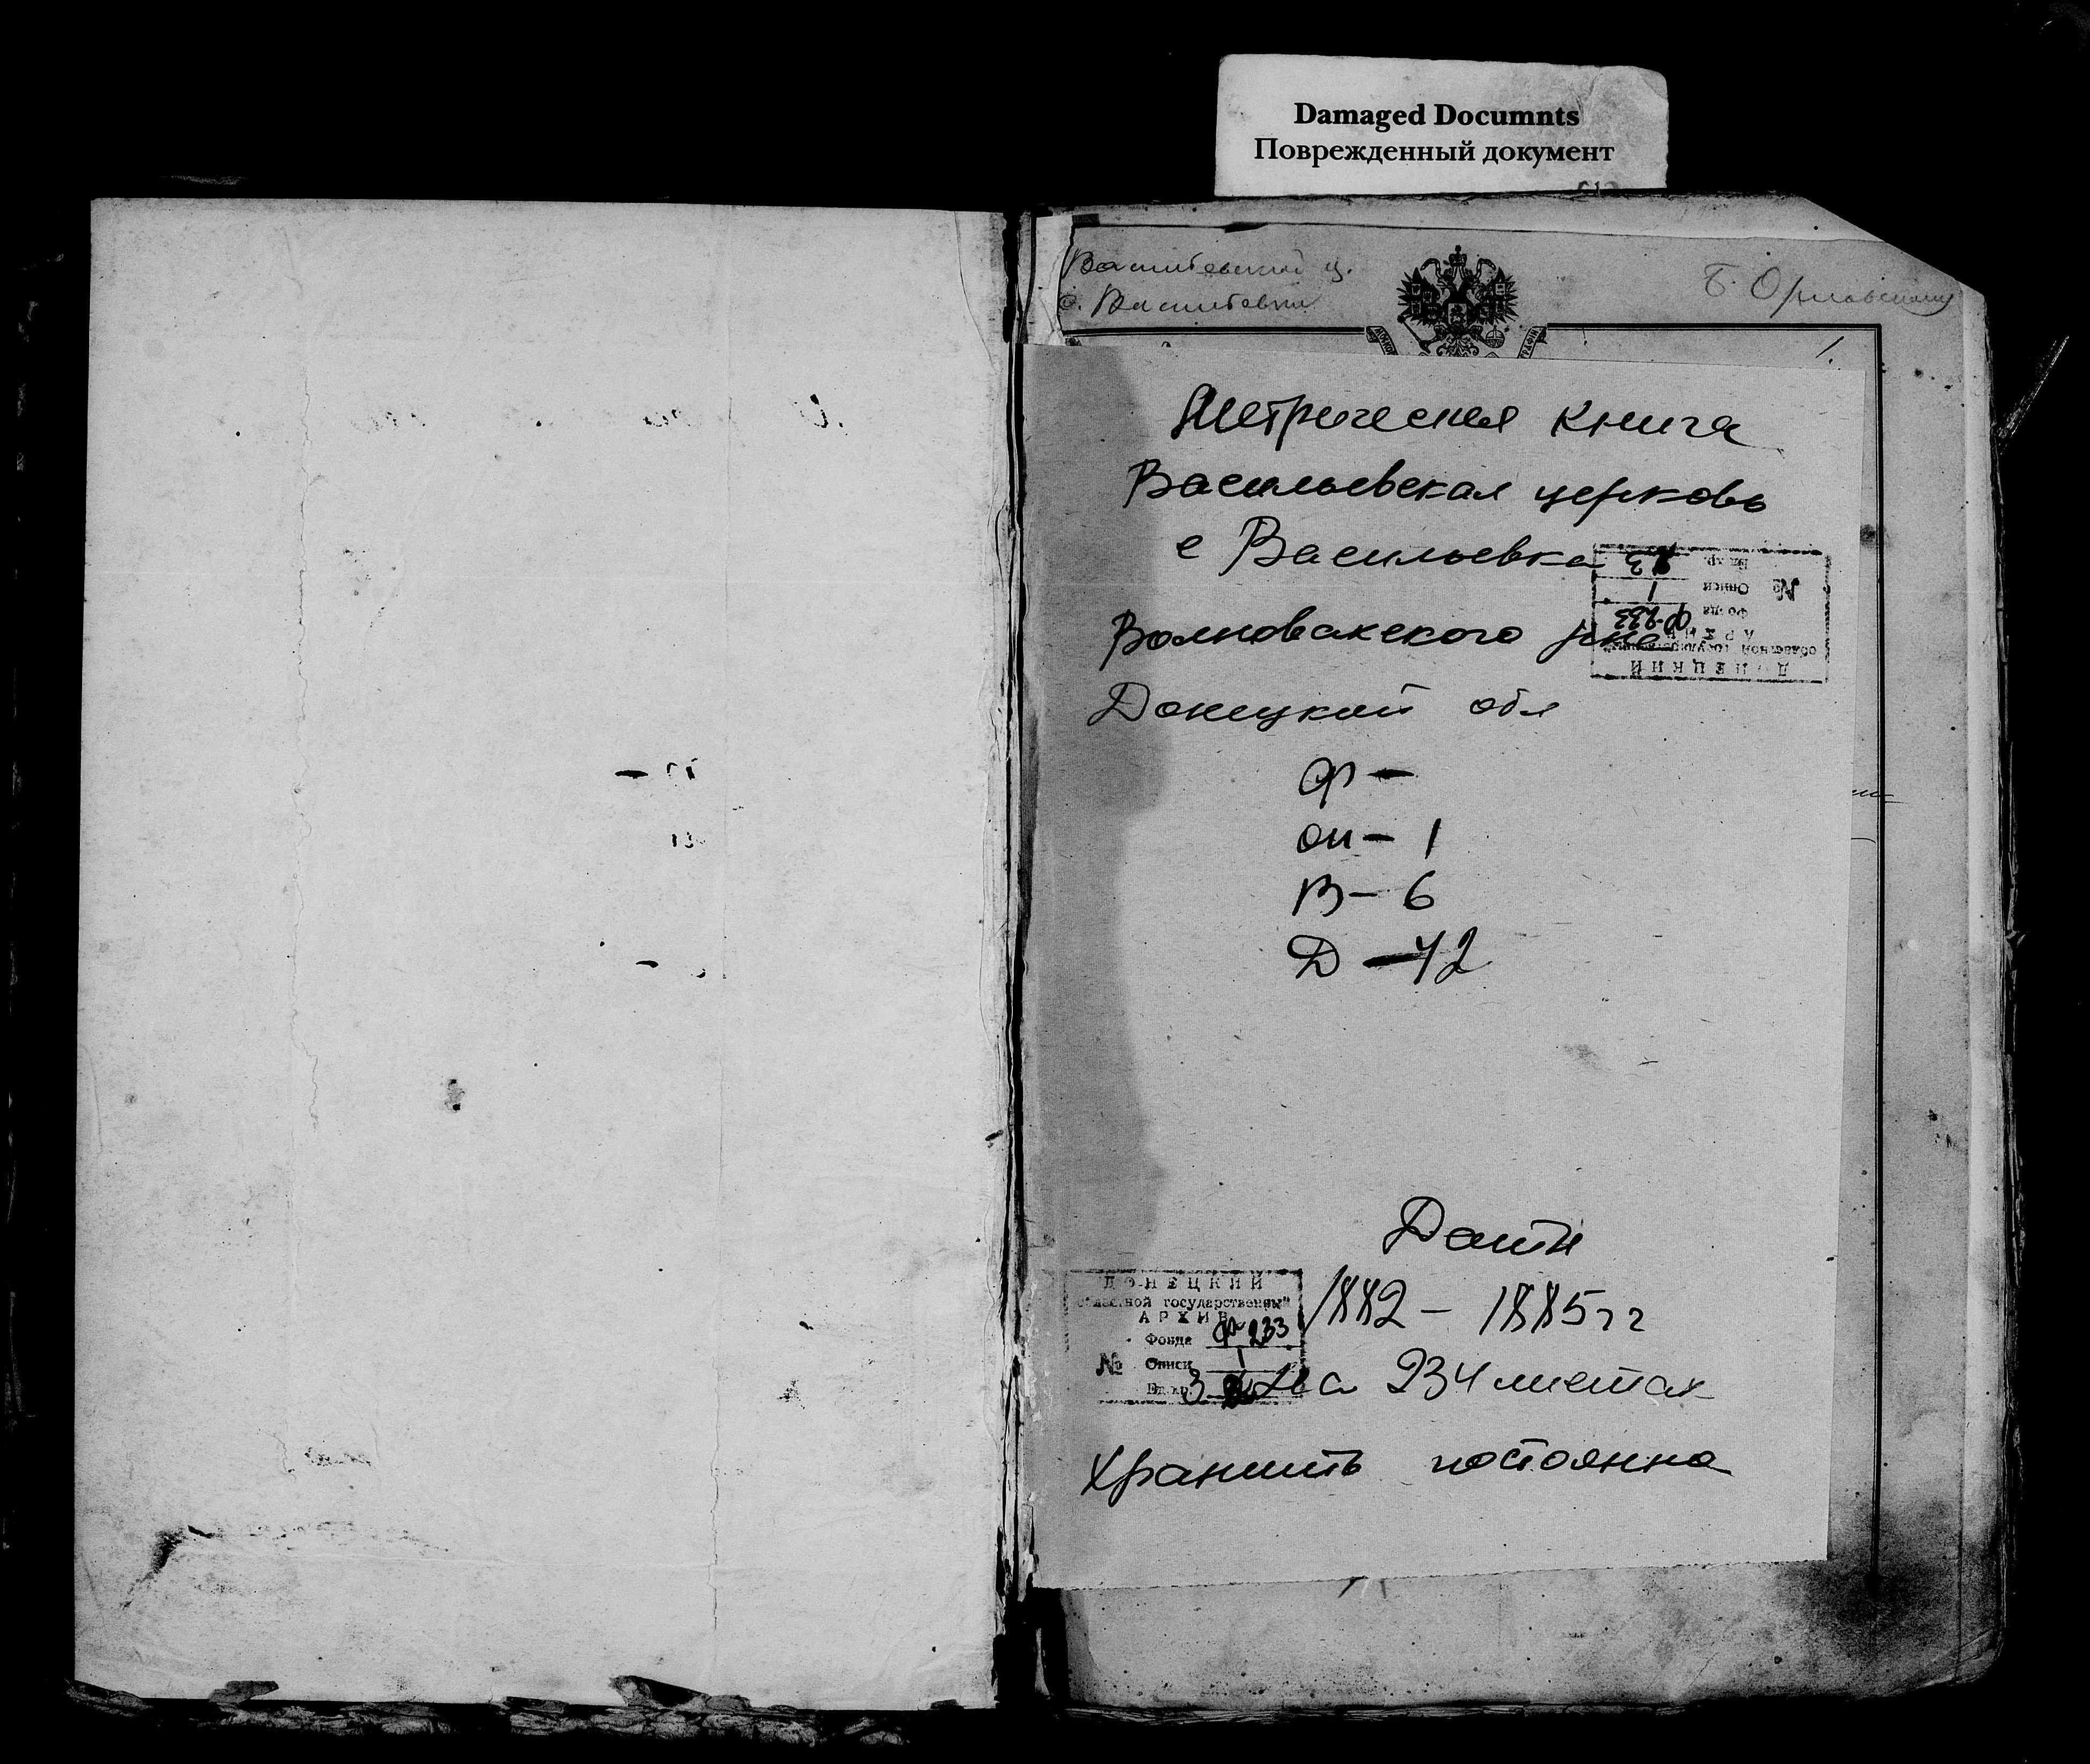 Damaged Documnts
Поврежденный документ
Васильевской ц.
с. Васильевки
1.
Метрическая книга
Васильевская церковь
с Васильевка
Волновахского р-на
Донецкой обл
Ф —
оп — 1
В — 6
Д — 42
ДОНЕЦКИЙ
областной государственный
АРХИВ
№ Фонда Ф-233
Описи 1
Ед. хр. 3
Даты
1882 — 1885 гг
На 234 листах
Хранить постоянно
ДОНЕЦКИЙ
областной государственный
АРХИВ
Фонда Ф-233
№ Описи 1
Ед. хр. 3